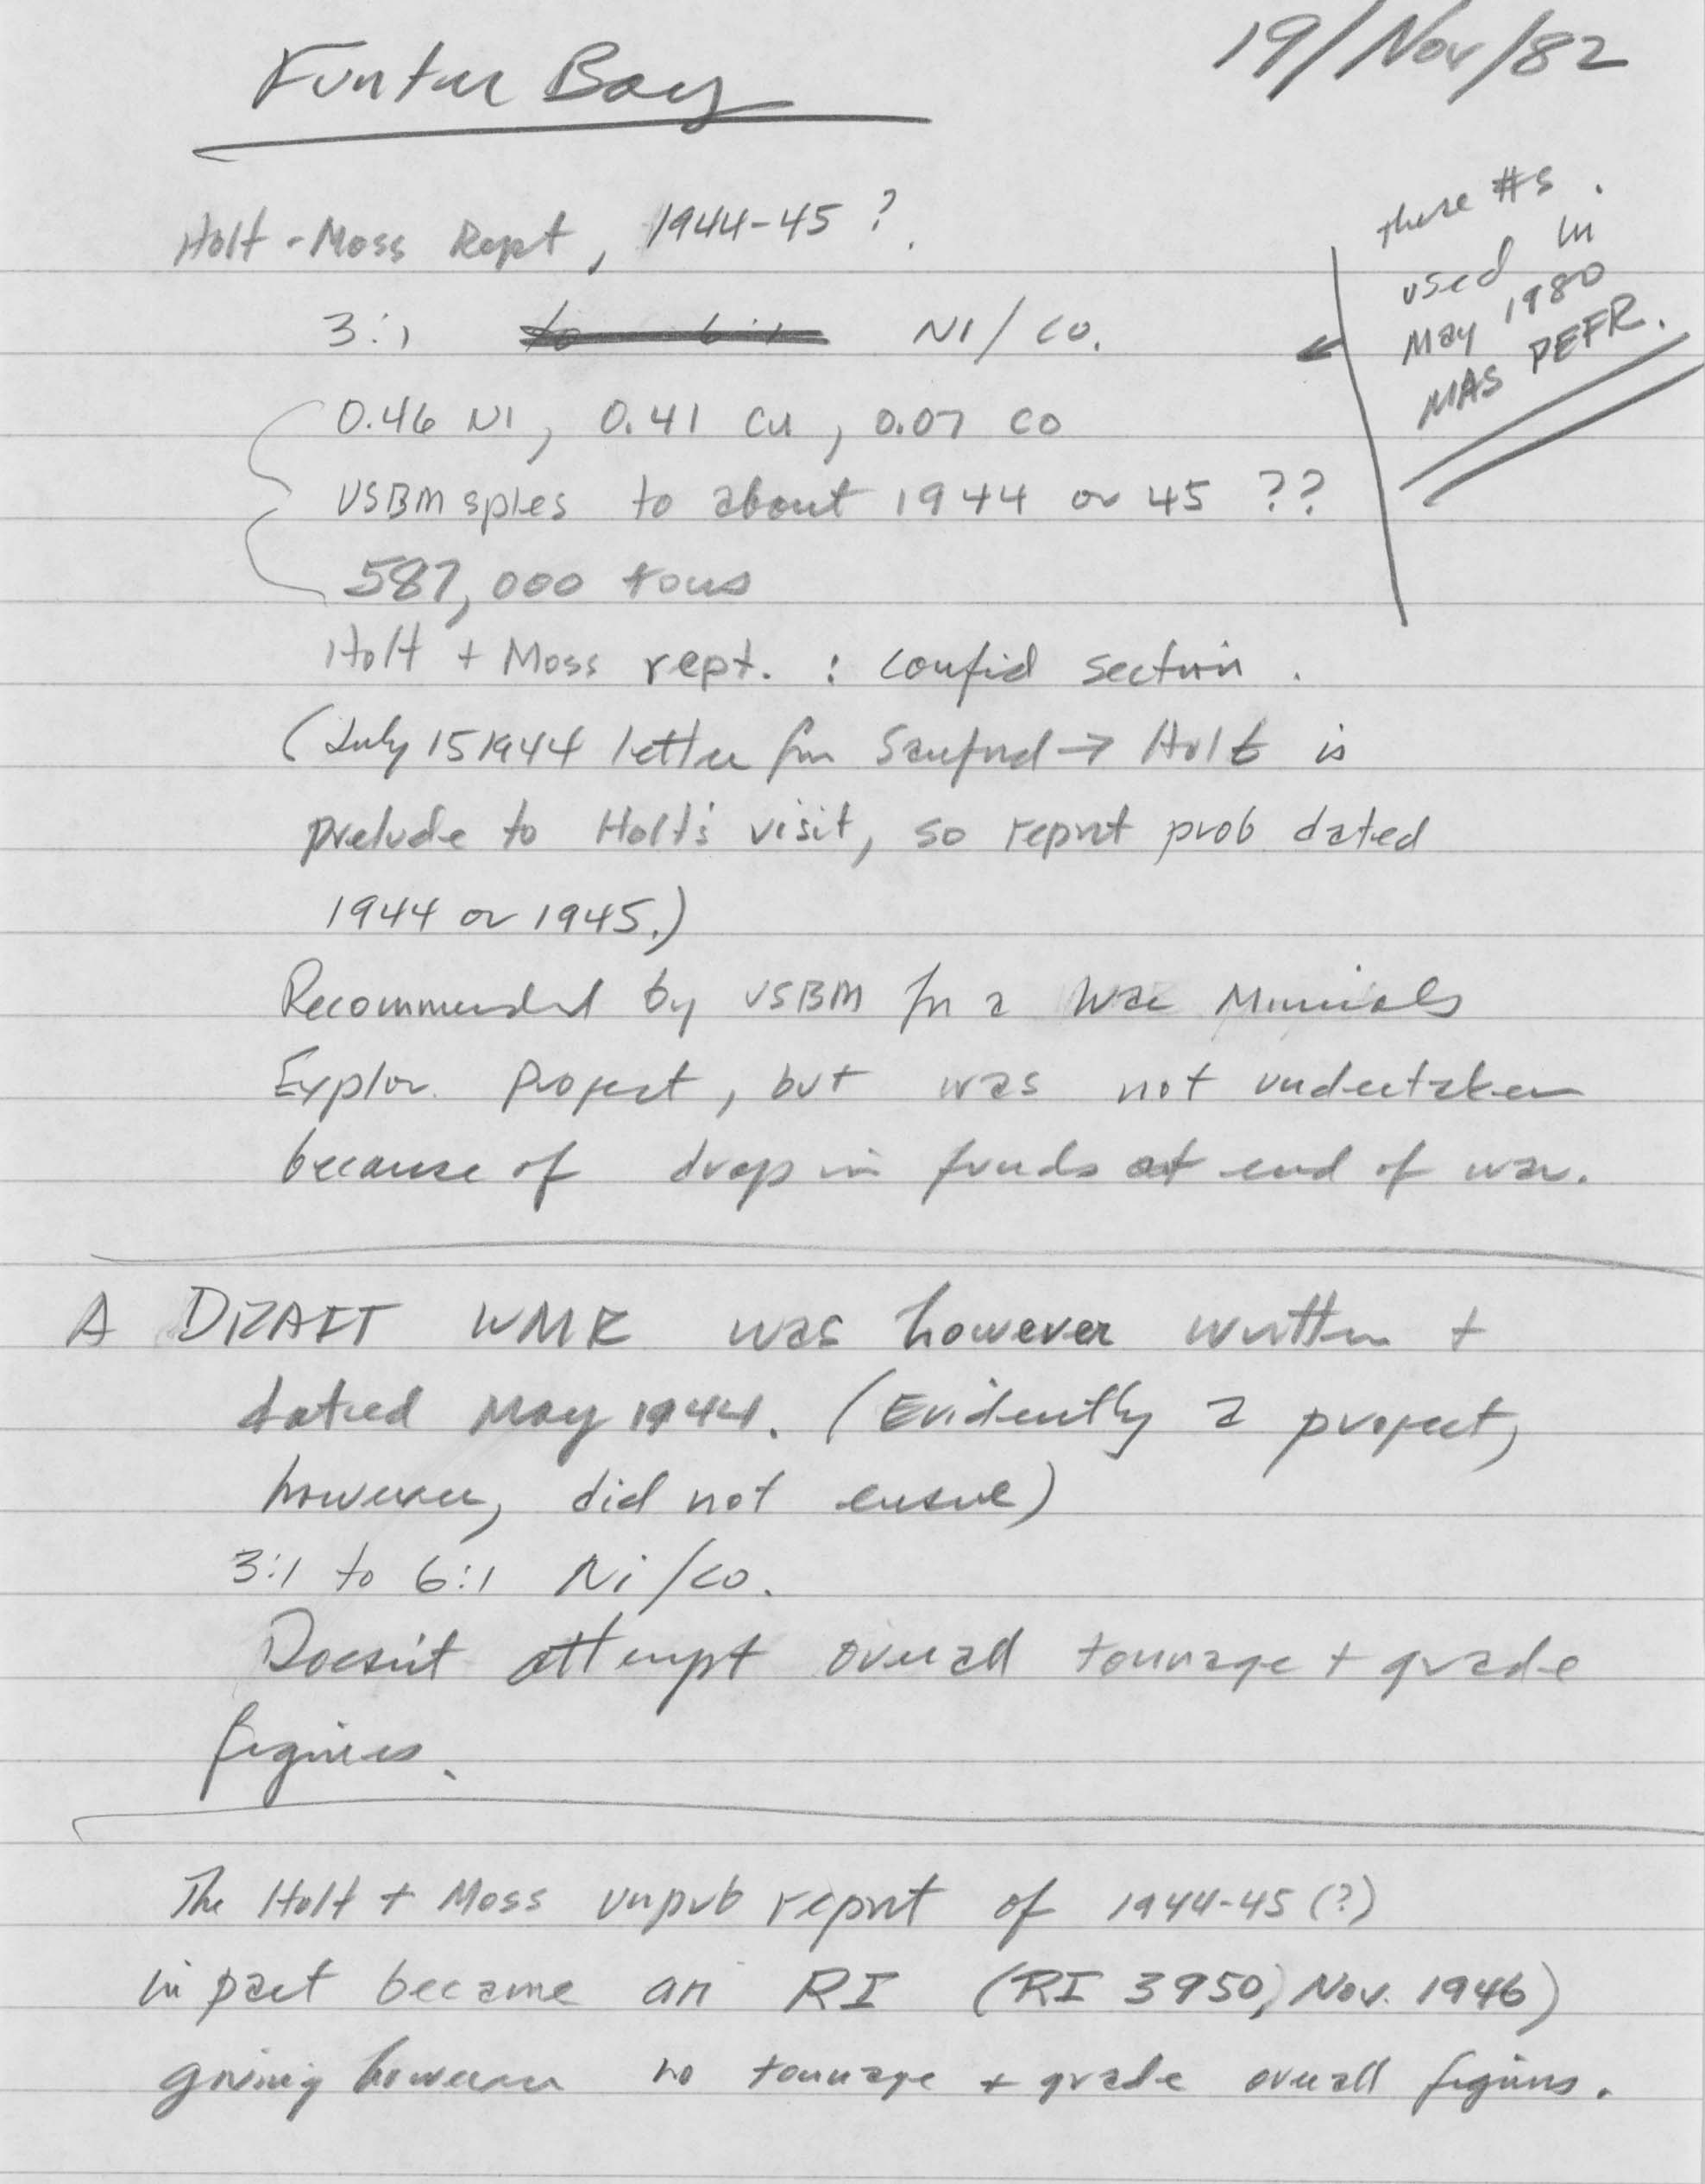 Funter Bay
19/Nov/82
Holt-Moss Rept, 1944-45 ?.
these #s.
used in
May 1980
MAS PEFR.
3:1 to 6:1 Ni/Co.
0.46 Ni, 0.41 Cu, 0.07 Co
USBM sples to about 1944 or 45 ??
587,000 tons
Holt + Moss rept. : confid section.
(July 15 1944 letter fm Sanford → Holt is
prelude to Holt's visit, so report prob dated
1944 or 1945.)
Recommended by USBM for a War Minerals
Explor. Project, but was not undertaken
because of drop in funds at end of war.
A DRAFT WMR was however written +
dated May 1944. (Evidently a project,
however, did not ensue)
3:1 to 6:1 Ni/Co.
Doesn't attempt overall tonnage + grade
figures.
The Holt + Moss unpub report of 1944-45 (?)
in part became an RI (RI 3950, Nov. 1946)
giving however no tonnage + grade overall figures.